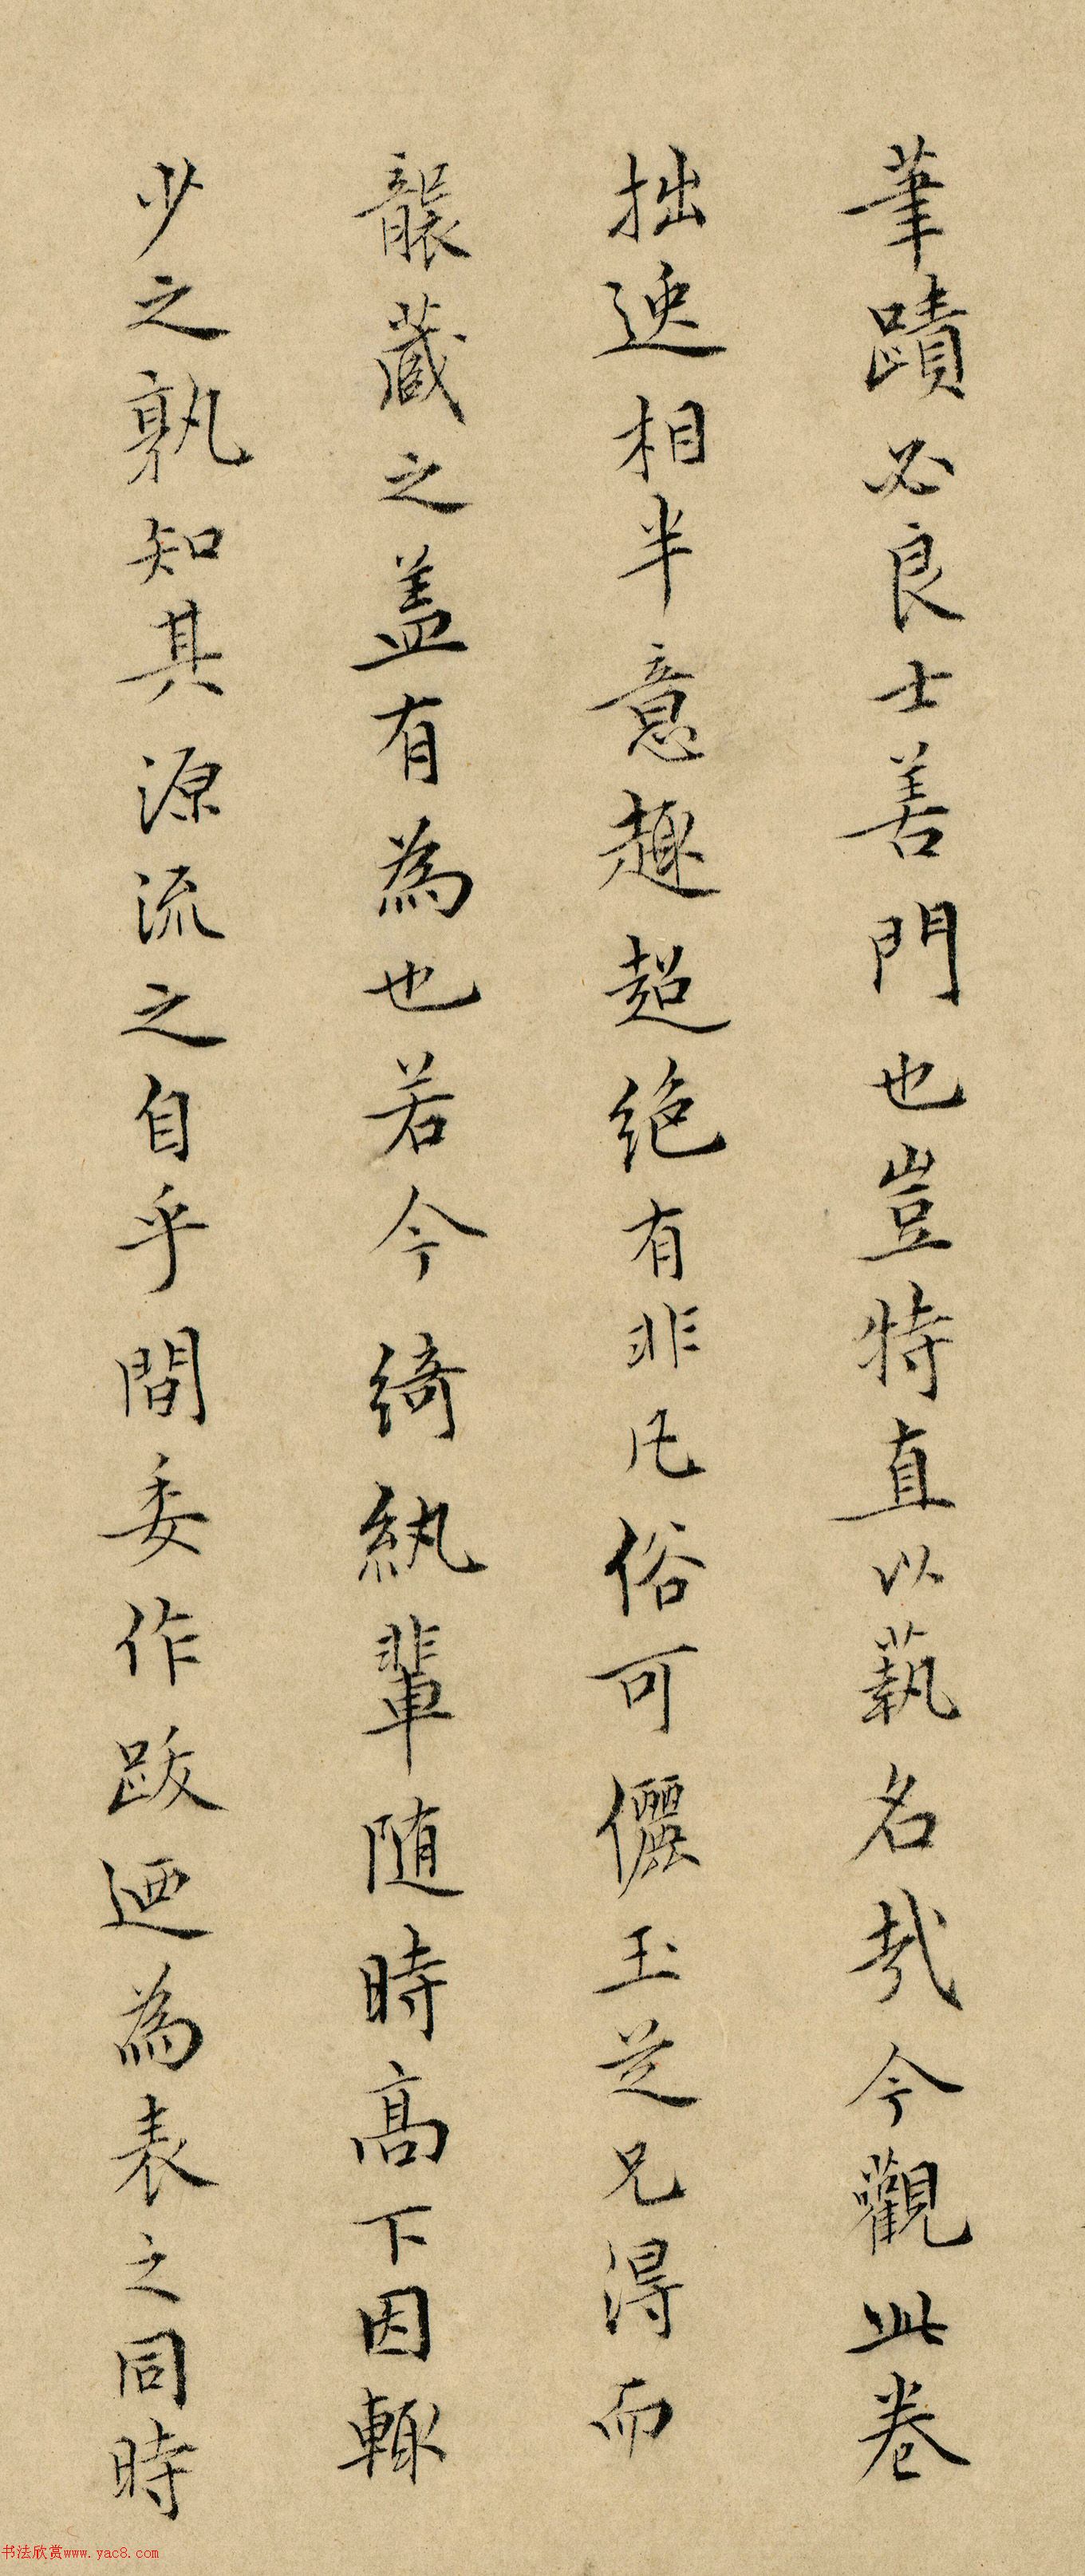 筆蹟必良士善門也豈特直以蓺名哉今觀此卷
拙速相半意趣超绝有非凡俗可儷玉芝兄得而
襲藏之盖有為也若今綺紈輩随時高下因輙
少之孰知其源流之自乎間委作跋迺為表之同時
书法欣赏www.yac8.com